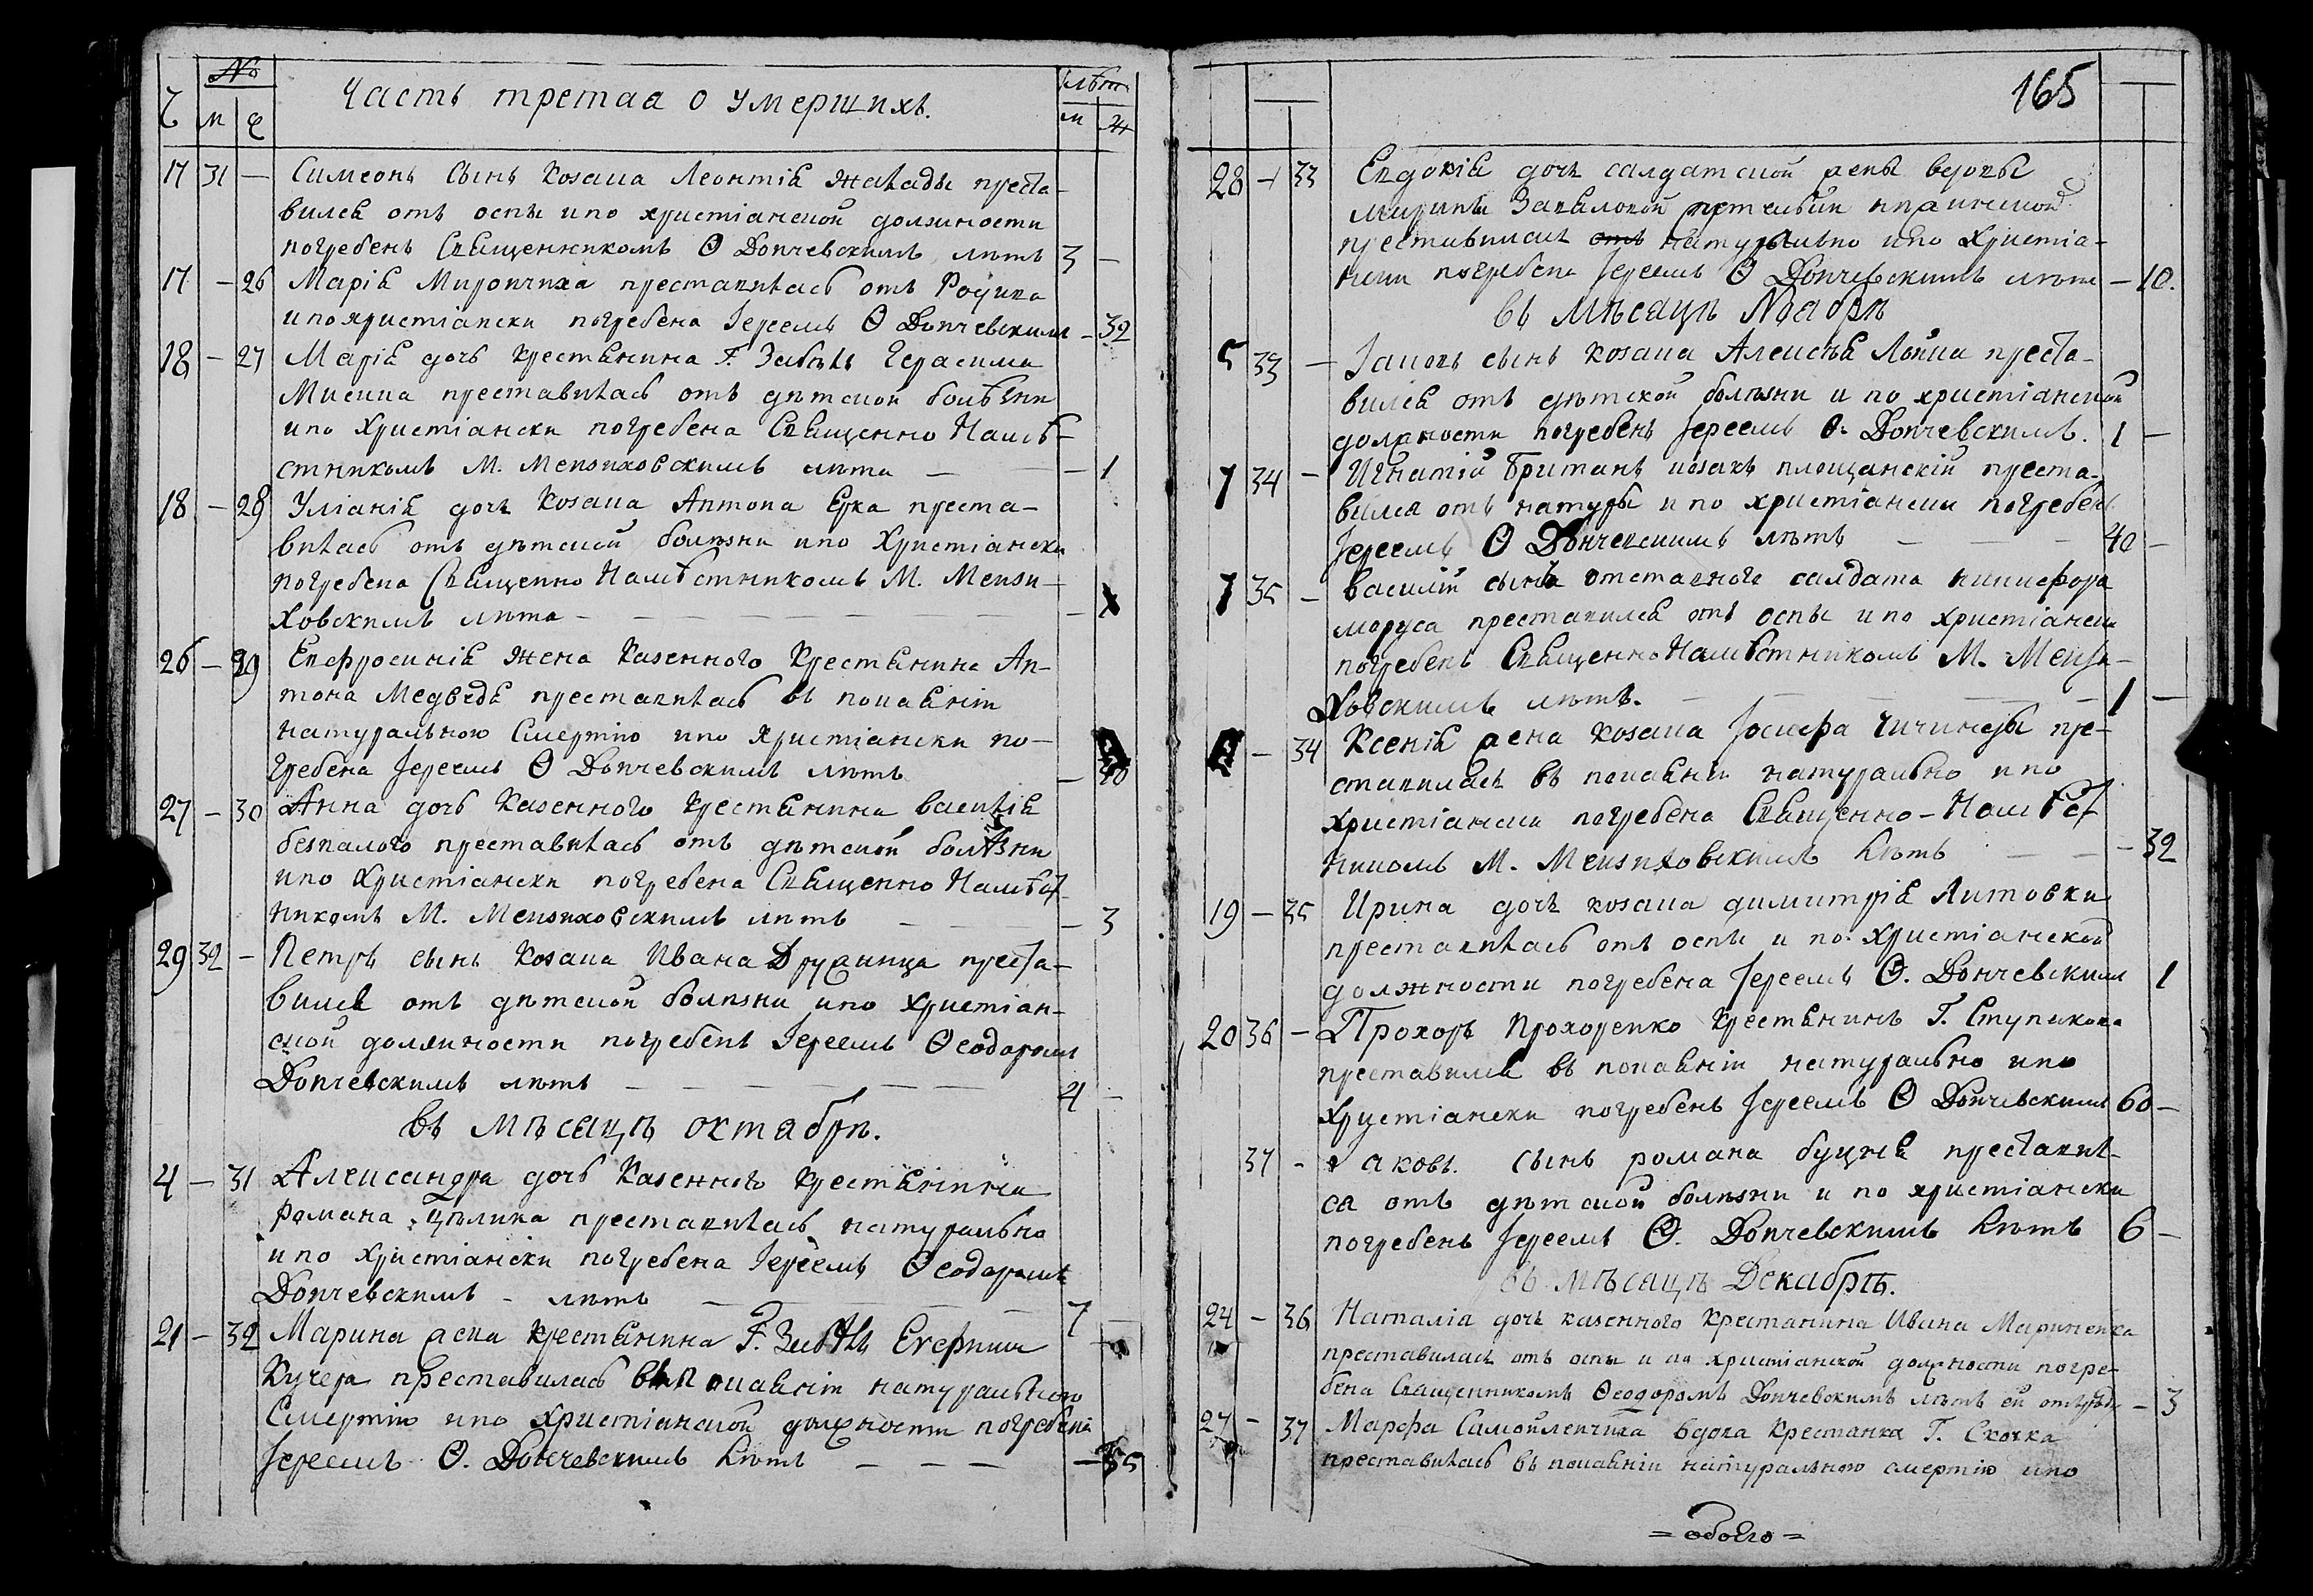 № лѣт
Ч м ж Часть третая о умершихъ. м ж
17 31 — Симеонъ сынъ козака Леонтія преста-
вился отъ оспы и по христіанской должности
погребенъ Священникомъ Ѳ Дончевскимъ лѣтъ 3 —
17 — 26 Марія Мирончиха преставилась отъ
и по христіански погребена Іереемъ Ѳ Дончевскимъ — 32
18 — 27 Марія дочь крестьянина Г. Забѣлы Герасима
преставилась отъ дѣтской болѣзни
и по христіански погребена Священно Намѣ-
стникомъ М. Мензиховскимъ лѣта — — 1
18 — 28 Уліанія дочь козака Антона преста-
вилась отъ дѣтской болѣзни и по христіански
погребена Священно Намѣстникомъ М. Мензи-
ховскимъ лѣта — — — — — —
26 — 29 Евфросинія жена казенного крестьянина Ан-
тона Медведя преставилась въ покаяніи
натуральною смертію и по христіански по-
гребена Іереемъ Ѳ Дончевскимъ лѣтъ —
27 — 30 Анна дочь казенного крестьянина Василія
безпалого преставилась отъ дѣтской болѣзни
и по христіански погребена Священно Намѣст-
никомъ М. Мензиховскимъ лѣтъ — — — 3
29 32 — Петръ сынъ козака Ивана преста-
вился отъ дѣтской болѣзни и по христіан-
ской должности погребенъ Іереемъ Ѳеодоромъ
Дончевскимъ лѣтъ — — — — — 4 —
въ мѣсяцѣ октябрѣ.
4 — 31 Александра дочь казенного крестьянина
романа цѣлика преставилась натурально
и по христіански погребена Іереемъ Ѳеодоромъ
Дончевскимъ — лѣтъ — — — 7 —
21 — 32 Марина жена крестьянина Г. Забѣлы
Кучера преставилась въ покаяніи натуральною
смертію и по христіанской должности погребена
Іереемъ Ѳ. Дончевскимъ лѣтъ — — — — 35
165
28 — 33 Евдокія дочь салдатской жены вдовы
преставилась натурально и по христіа-
нски погребена Іереемъ Ѳ Дончевскимъ лѣтъ — 10.
въ мѣсяцѣ Ноябрѣ
5 33 — Іаковъ сынъ козака Алексѣя преста-
вился отъ дѣтской болѣзни и по христіанской
должности погребенъ Іереемъ Ѳ. Дончевскимъ. 1 —
7 34 — Игнатій Британъ козакъ площанскій преста-
вился отъ натуры и по христіански погребенъ
Іереемъ Ѳ Дончевскимъ лѣтъ — — — 40 —
7 35 — Василій сынъ отставного салдата никифора
моруса преставился отъ оспы и по христіански
погребенъ Священно Намѣстникомъ М. Мензи-
ховскимъ лѣтъ. — — — — — 1 —
— 34 Ксенія жена козака Іосифа пре-
ставилась въ покаяніи натурально и по
христіански погребена Священно-Намѣст
никомъ М. Мензиховскимъ лѣтъ — — — 32
19 — 35 Ирина дочь козака димитрія Литовки
преставилась отъ оспы и по христіанской
должности погребена Іереемъ Ѳ. Дончевскимъ 1
20 36 — Прохоръ Прохоренко крестьянинъ Г. Ступикова
преставился въ покаяніи натурально и по
христіански погребенъ Іереемъ Ѳ Дончевскимъ 60 —
37 — Іаковъ сынъ романа буцня преставил-
ся отъ дѣтской болѣзни и по христіански
погребенъ Іереемъ Ѳ. Дончевскимъ лѣтъ 6 —
въ мѣсяцѣ Декабрѣ.
24 — 36 Наталіа дочь казенного крестанина Ивана Мариненка
преставилась отъ оспы и по христіанской должности погре-
бена Священникомъ Ѳеодоромъ Дончевскимъ лѣтъ ей — 3
27 — 37 Марфа Самойленчиха вдова крестанка Г. Скочка
преставилась въ покаяніи натуральною смертію и по
= обоего =